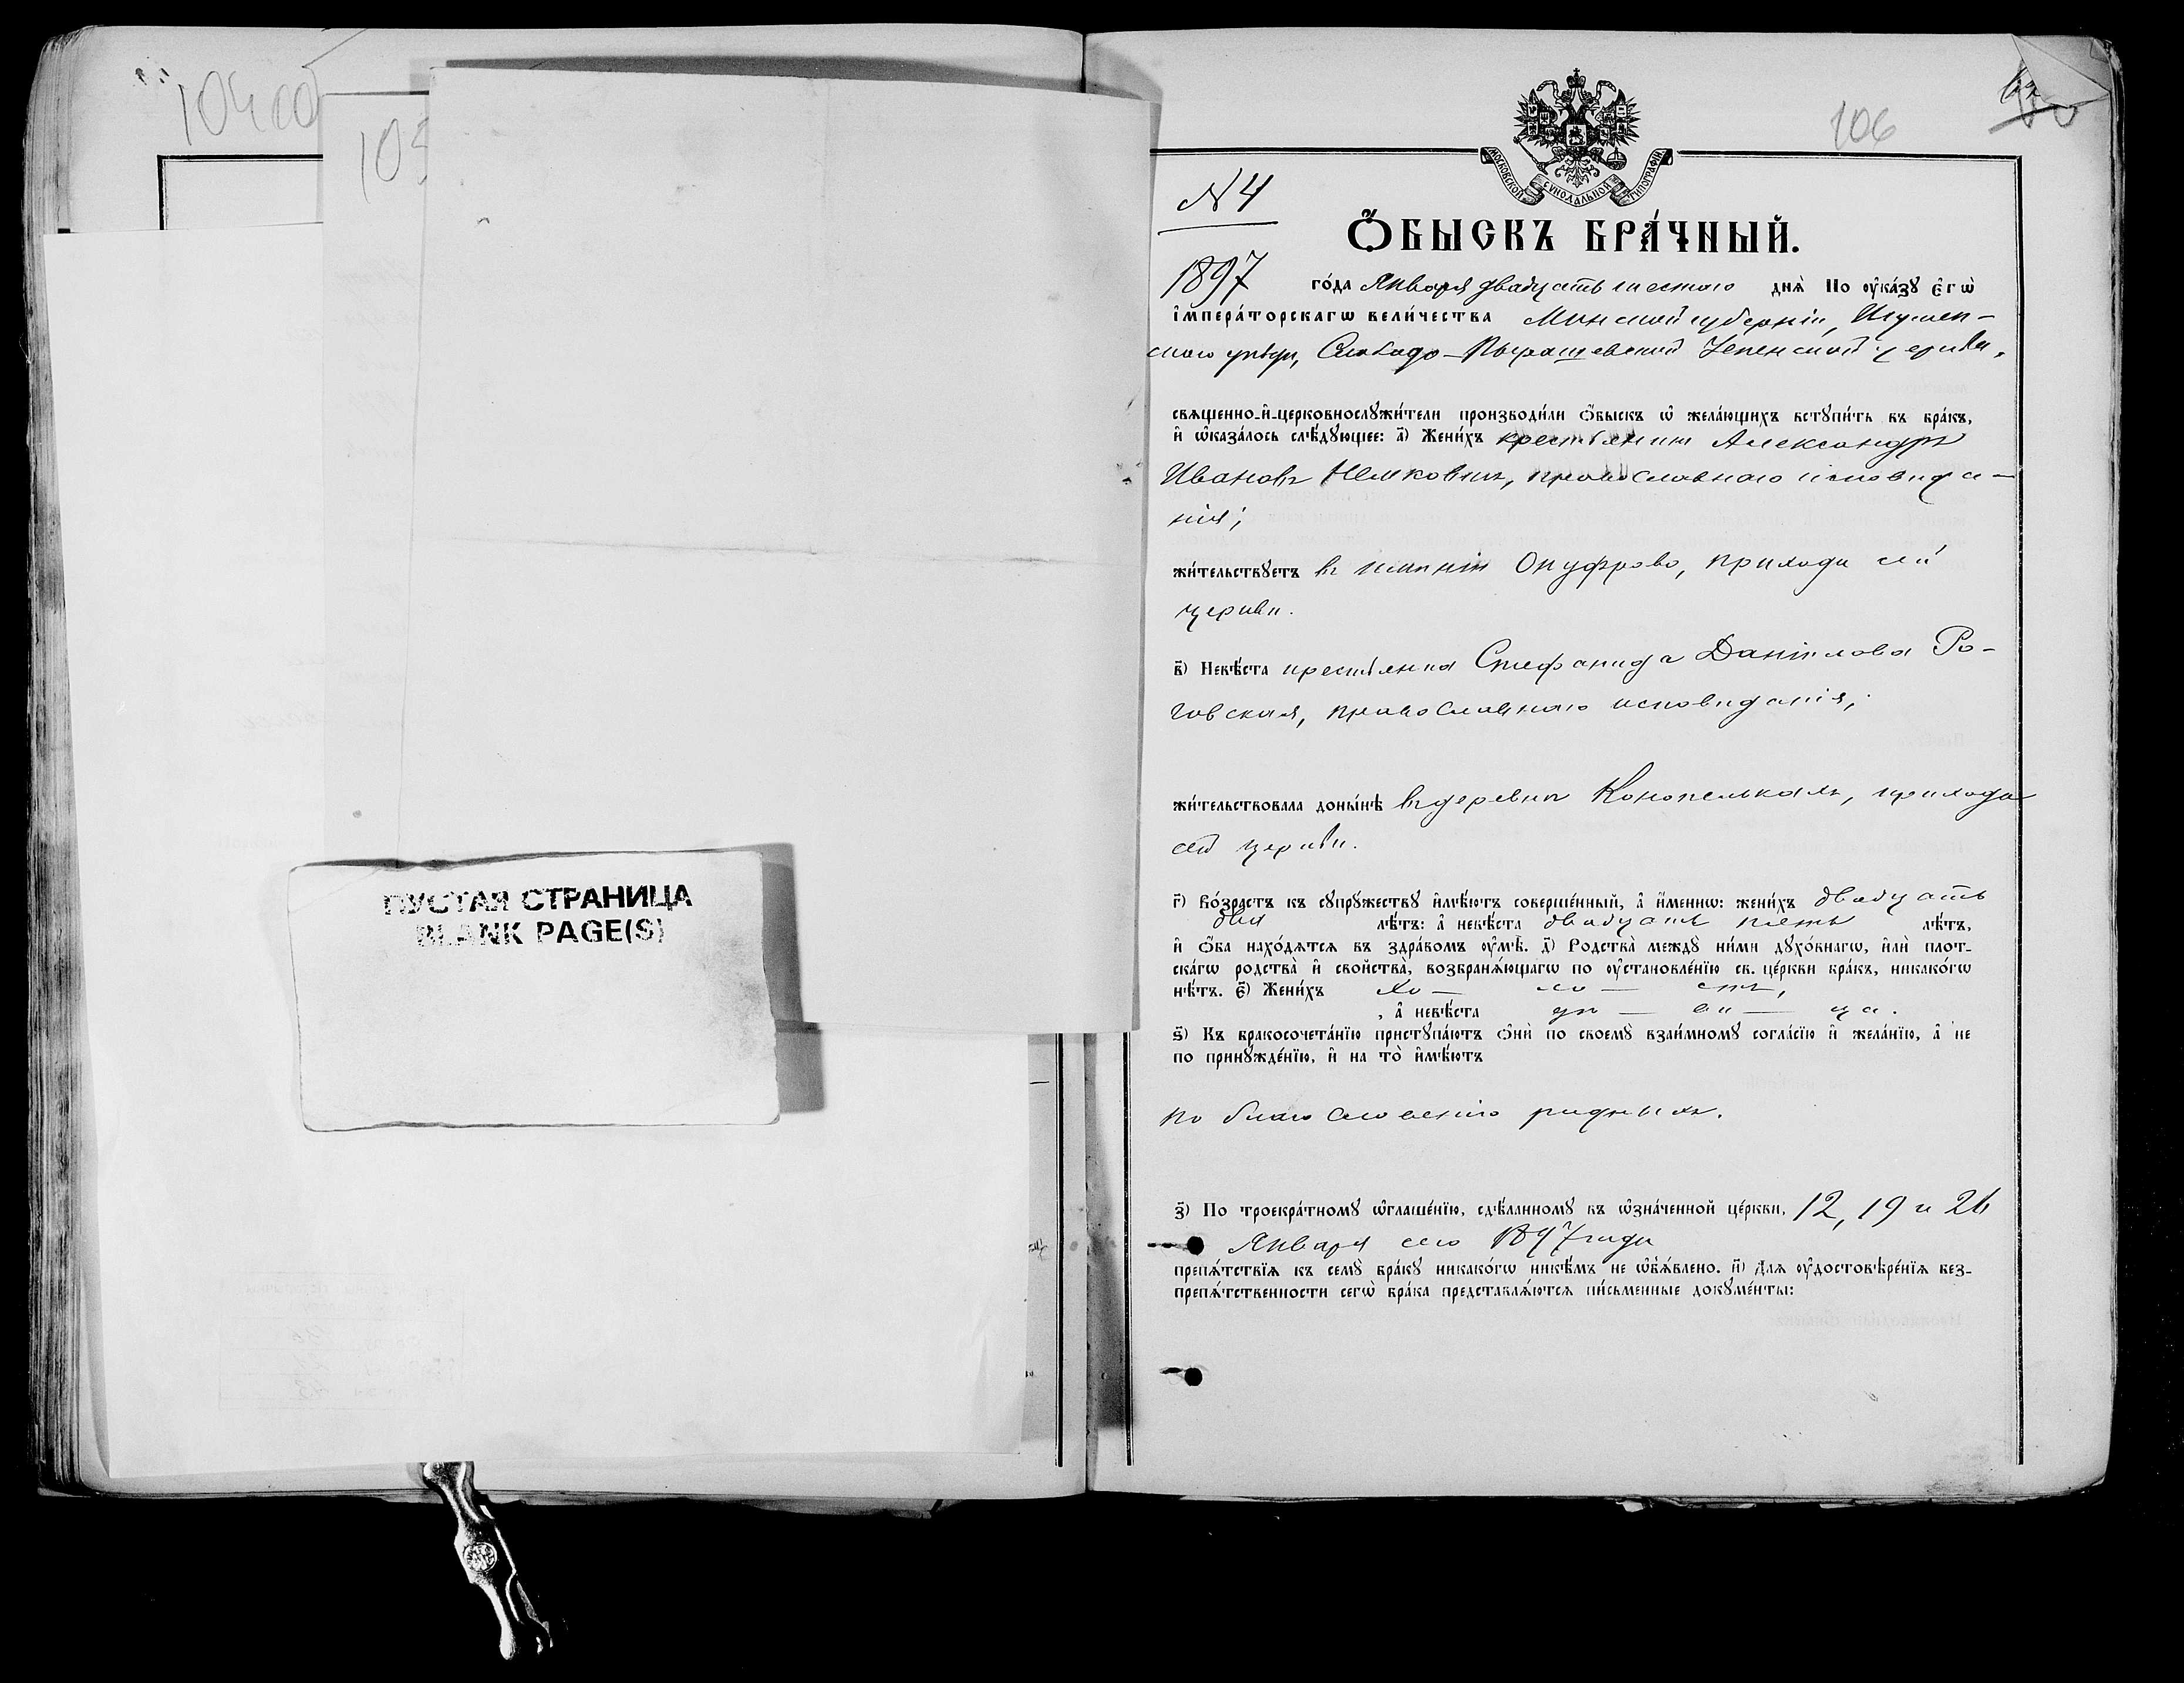 104 об
105
ПУСТАЯ СТРАНИЦА
BLANK PAGE(S)
106
МОСКОВСКОЙ СУНОДАЛЬНОЙ ТИПОГРАФІИ
N 4
Ѻ҆БЫСКЪ БРА́ЧНЫЙ.
1897 го́да Января двадцать шестого днѧ̀ По ᲂу҆ка́зꙋ є҆гѡ̀
і҆мпера́торскагѡ вели́чества Минской губерніи, Игумен-
скаго уѣзда, Слободо-Пырашевской Успенской церкви,
свѧщенно-и҆-церковнослꙋжи́тели производи́ли ѻ҆́быскъ ѡ҆ жела́ющихъ встꙋпи́ть въ бра́къ,
и҆ ѡ҆каза́лось слѣ́дꙋющее: а҃) Жени́хъ крестьянинъ Александръ
Ивановъ Немковичъ, православнаго исповѣда-
нія;
жи́тельствꙋетъ въ имѣніи Онуфрово, прихода сей
церкви.
в҃) Невѣ́ста крестьянка Стефанида Даніилова Ро-
говская, православнаго исповѣданія,
жи́тельствовала доны́нѣ въ деревнѣ Конопелькахъ, прихода
сей церкви.
г҃) Во́зрастъ къ сꙋпрꙋ́жествꙋ и҆мѣ́ютъ соверше́нный, а҆ и҆́меннѡ: жени́хъ двадцать
два лѣ́тъ: а҆ невѣ́ста двадцать пять лѣ́тъ,
и҆ ѻ҆́ба нахо́дѧтсѧ въ здра́вомъ ᲂу҆мѣ̀. д҃) Родства̀ междꙋ̀ ни́ми дꙋхо́внагѡ, и҆лѝ плот-
ска́гѡ родства̀ и҆ сво́йства, возбранѧ́ющагѡ по ᲂу҆становле́нїю св. це́ркви бра́къ, никако́гѡ
нѣ́тъ. є҃) Жени́хъ хо — ло — стъ,
, а҆ невѣ́ста дѣ — ви — ца.
ѕ҃) Къ бракосочета́нїю пристꙋпа́ютъ ѻ҆нѝ по своемꙋ̀ взаи́мномꙋ согла́сїю и҆ жела́нїю, а҆ не
по принꙋжде́нїю, и҆ на то̀ и҆мѣ́ютъ
по благословенію родныхъ.
з҃) По троекра́тномꙋ ѡ҆глаше́нїю, сдѣ́ланномꙋ въ ѡ҆зна́ченной це́ркви, 12, 19 и 26
Января сего 1897 года
препѧ́тствїѧ къ семꙋ̀ бра́кꙋ никако́гѡ никѣ́мъ не ѡ҆бъѧ́влено. и҃) Длѧ ᲂу҆достовѣре́нїѧ без-
препѧ́тственности сегѡ̀ бра́ка представлѧ́ютсѧ пи́сьменные докꙋме́нты: